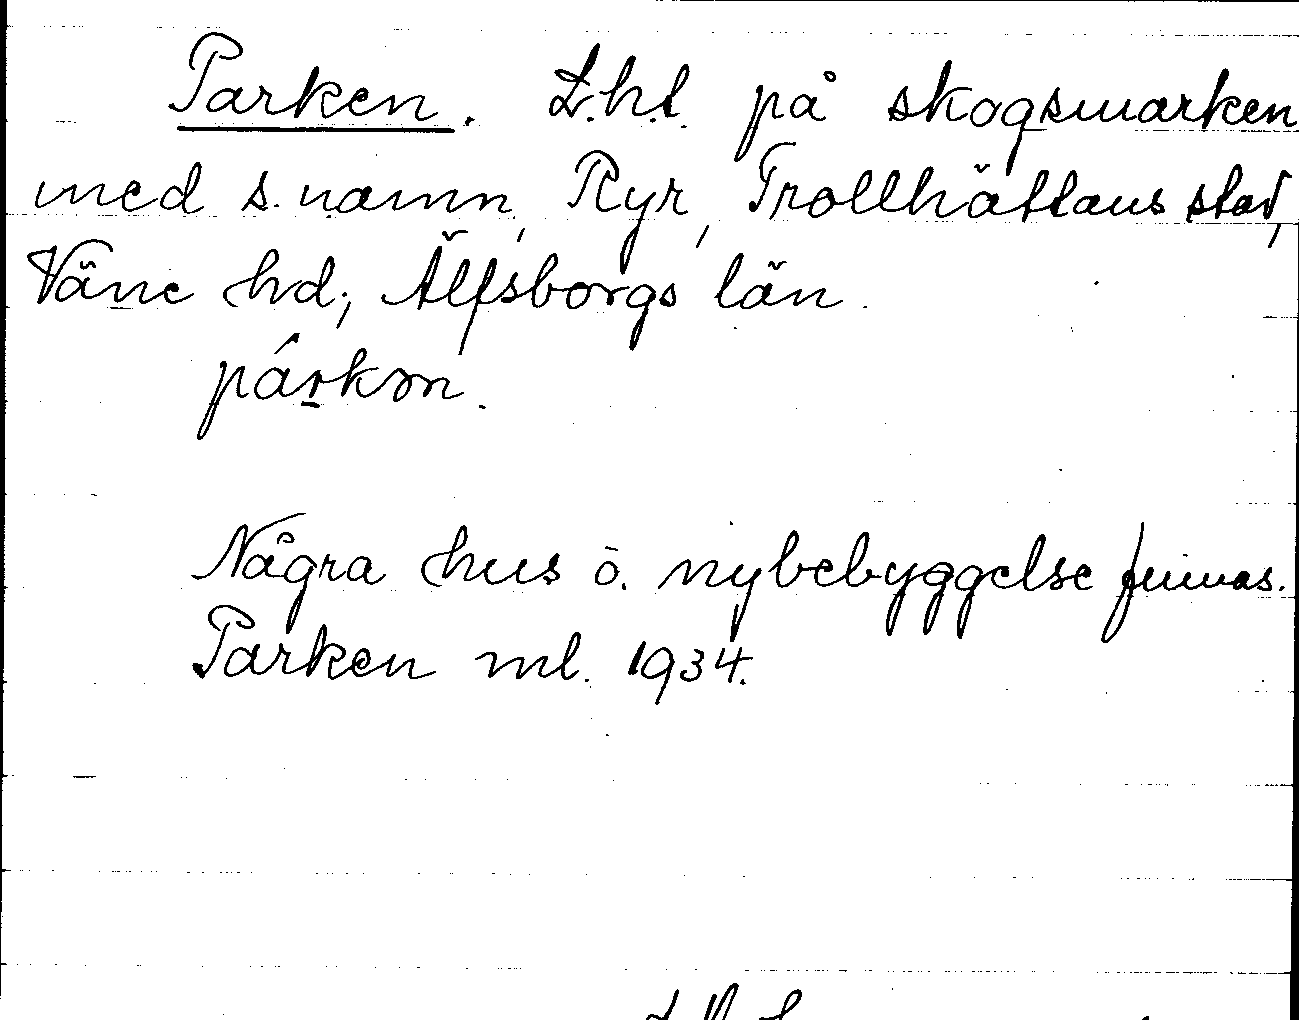 Parken. L.h.t. på skogsmarken
med s. namn, Ryr, Trollhättans stad,
Väne hd; Älfsborgs län.
párkən.
Några hus o. nybebyggelse finnas.
Parken ml. 1934.